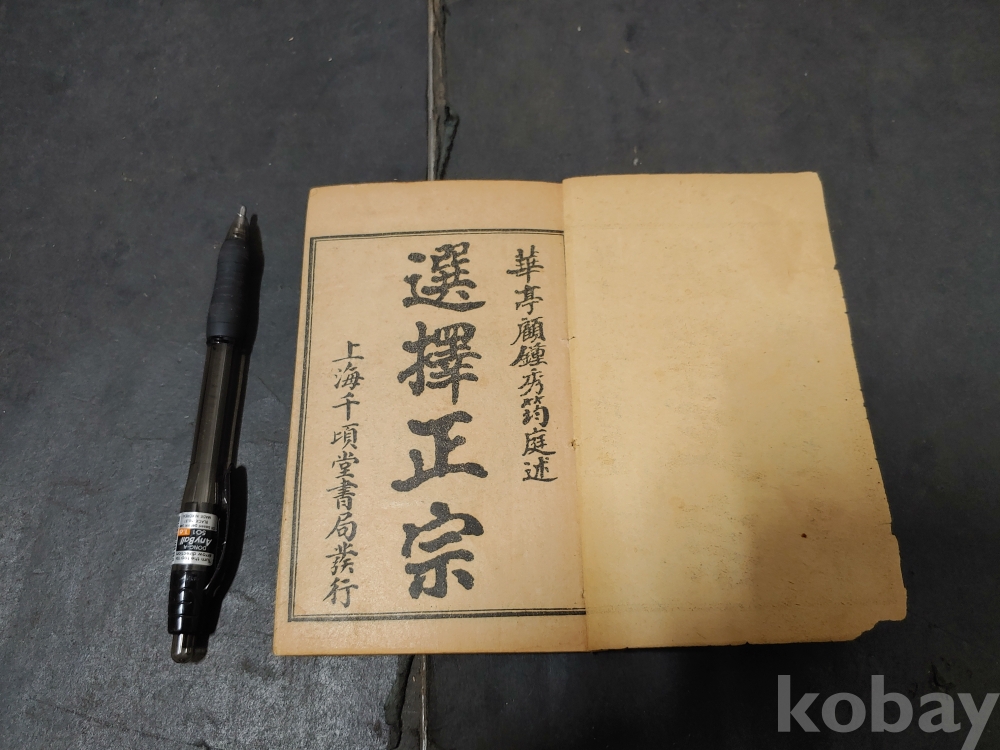 華亭顧鍾秀筠庭述
選擇正宗
上海千頃堂書局發行
DONG-A
AnyBall
501
kobay